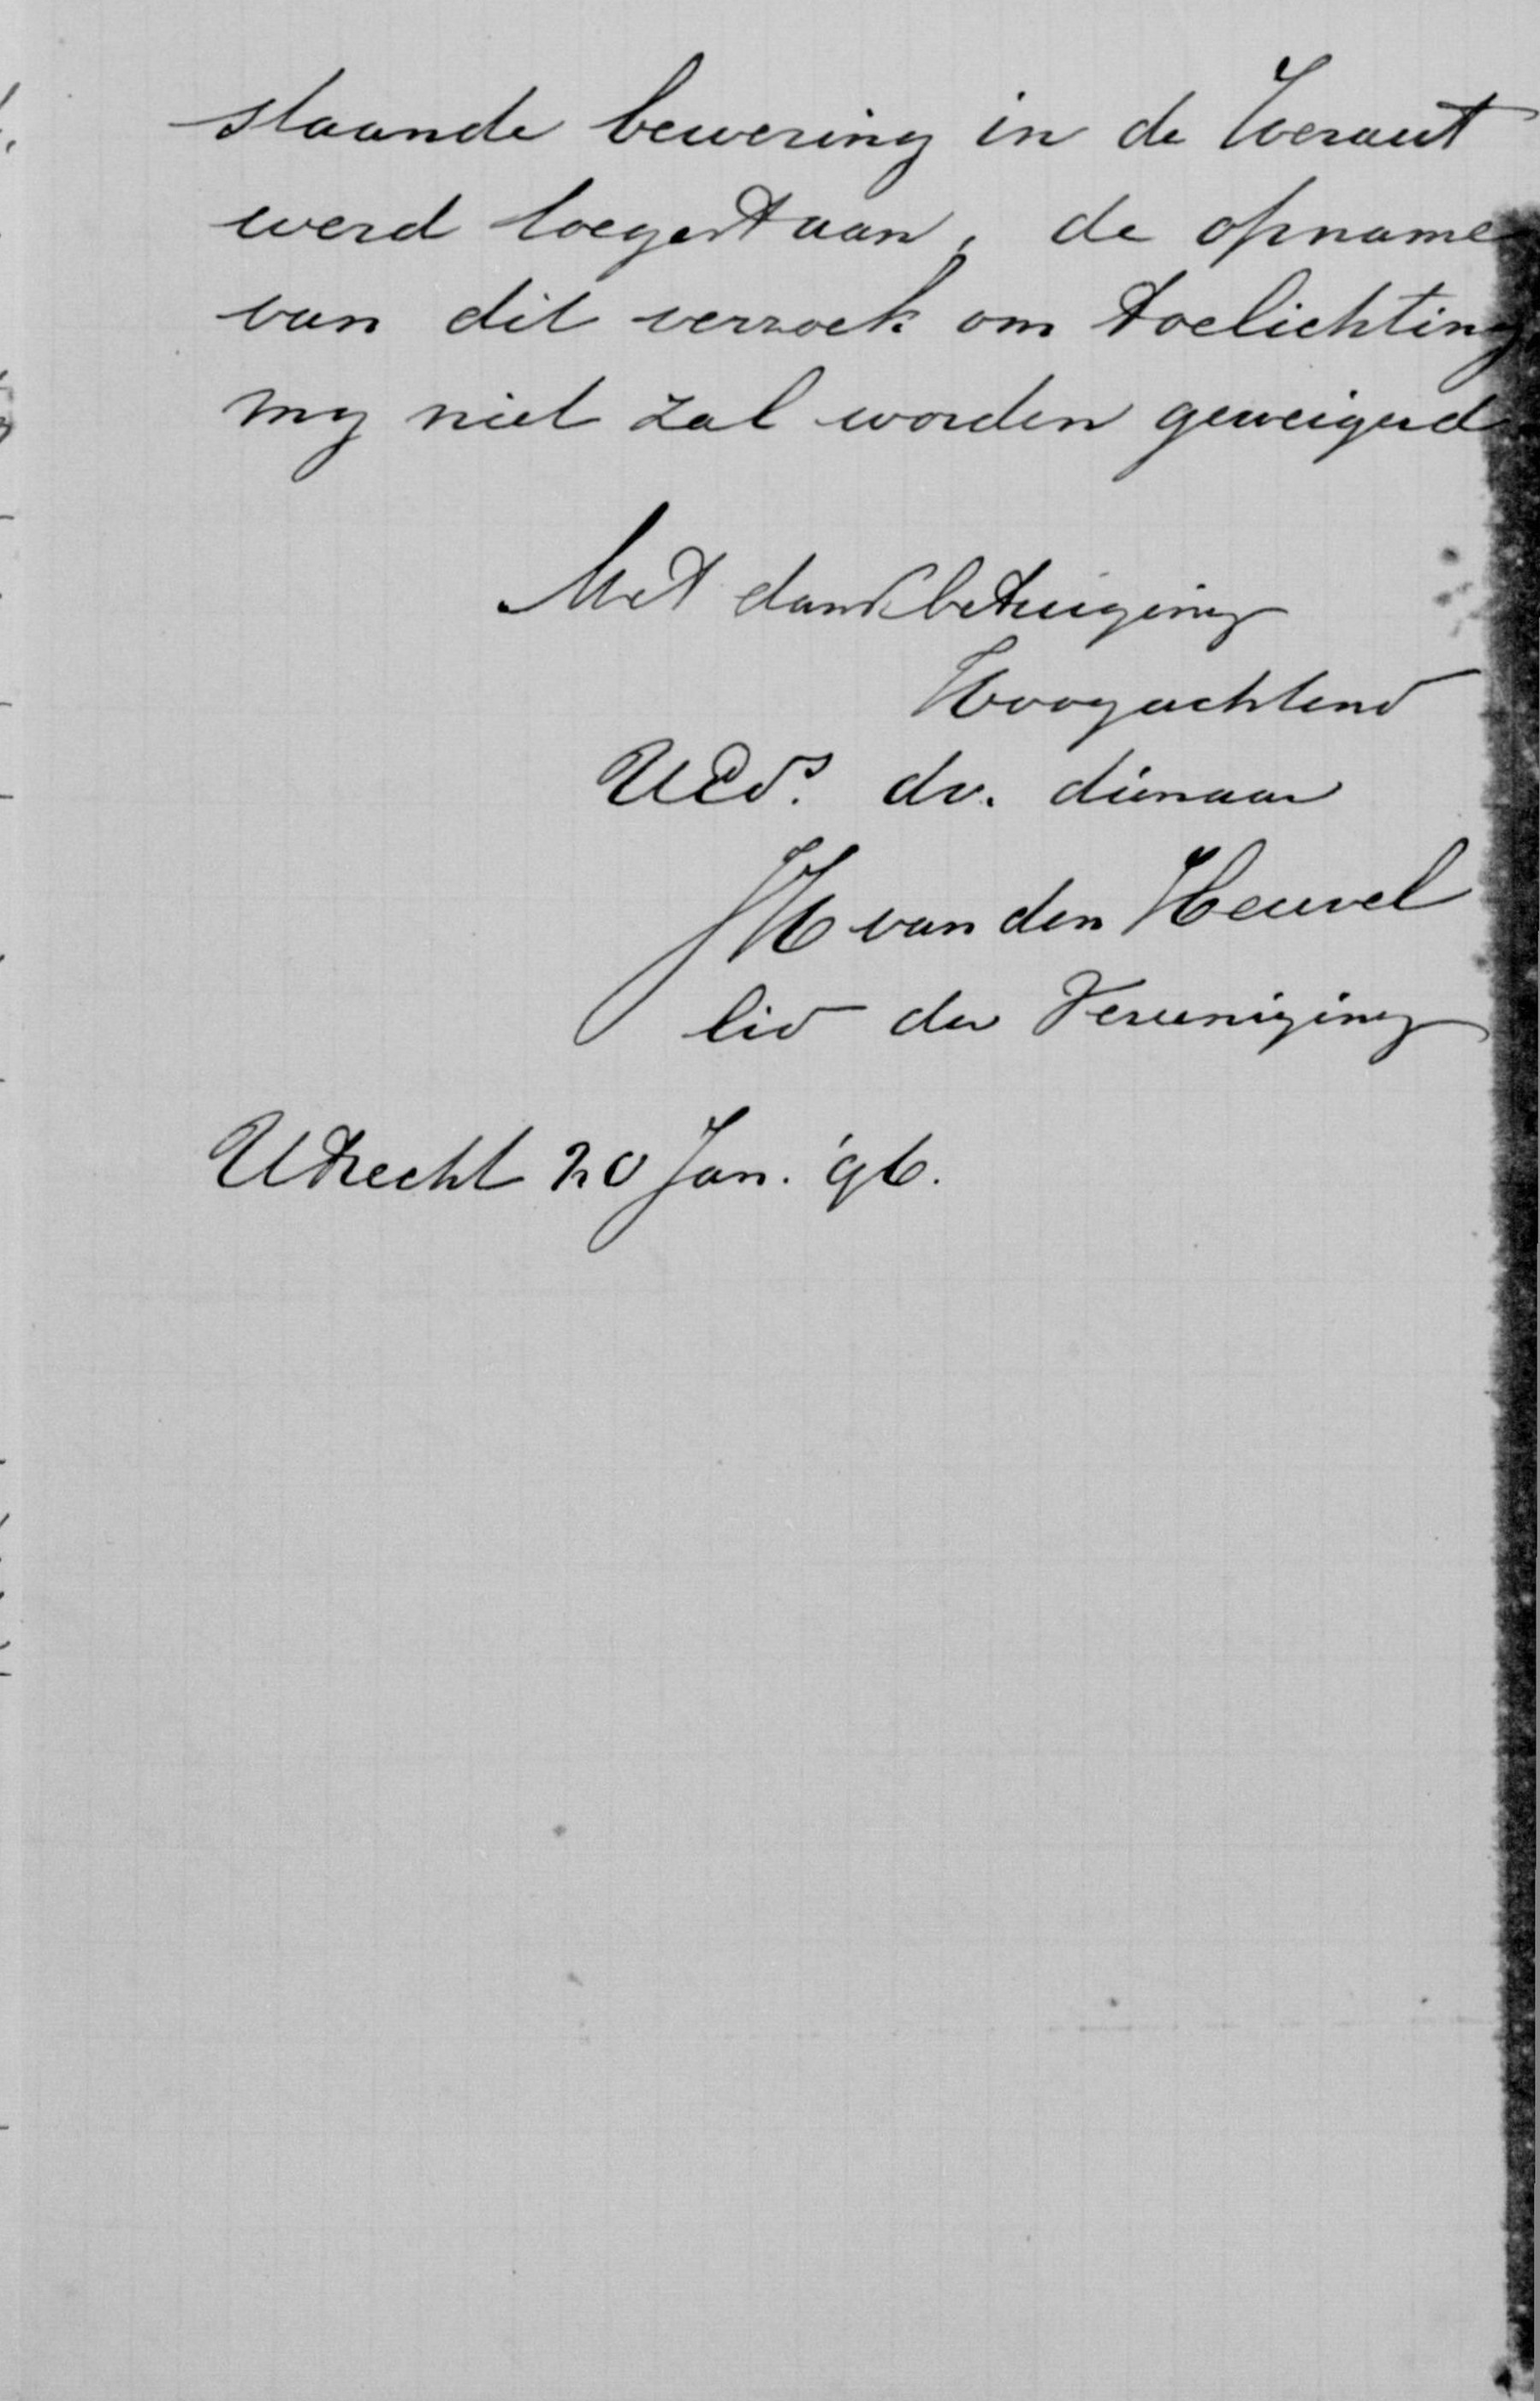 staande bewering in de Heraut
werd toegestaan, de opname
van dit verzoek om toelichting
my niet zal worden geweigerd
Met dankbetuiging
Hoogachtend
UEds. dv. dienaar
JH van den Heuvel
lid der Vereeniging
Utrecht 20 Jan. '96.